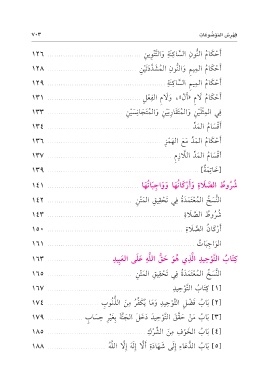 فِهْرِسُ المَوْضُوعَاتِ ٧٠٣
أَحْكَامُ النُّونِ السَّاكِنَةِ وَالتَّنْوِينِ ١٢٦
أَحْكَامُ المِيمِ وَالنُّونِ المُشَدَّدَتَيْنِ ١٢٨
أَحْكَامُ المِيمِ السَّاكِنَةِ ١٢٩
أَحْكَامُ لَامِ «أَلْ»، وَلَامِ الفِعْلِ ١٣١
فِي المِثْلَيْنِ وَالمُتَقَارِبَيْنِ وَالمُتَجَانِسَيْنِ ١٣٣
أَقْسَامُ المَدِّ ١٣٤
أَحْكَامُ المَدِّ مَعَ الهَمْزِ ١٣٦
أَقْسَامُ المَدِّ اللَّازِمِ ١٣٧
[خَاتِمَةٌ] ١٣٩
شُرُوطُ الصَّلَاةِ وَأَرْكَانُهَا وَوَاجِبَاتُهَا ١٤١
النُّسَخُ المُعْتَمَدَةُ فِي تَحْقِيقِ المَتْنِ ١٤٢
شُرُوطُ الصَّلَاةِ ١٤٣
أَرْكَانُ الصَّلَاةِ ١٥٠
الوَاجِبَاتُ ١٦١
كِتَابُ التَّوْحِيدِ الَّذِي هُوَ حَقُّ اللَّهِ عَلَى العَبِيدِ ١٦٣
النُّسَخُ المُعْتَمَدَةُ فِي تَحْقِيقِ المَتْنِ ١٦٥
[١] كِتَابُ التَّوْحِيدِ ١٦٧
[٢] بَابُ فَضْلِ التَّوْحِيدِ وَمَا يُكَفِّرُ مِنَ الذُّنُوبِ ١٧٤
[٣] بَابُ مَنْ حَقَّقَ التَّوْحِيدَ دَخَلَ الجَنَّةَ بِغَيْرِ حِسَابٍ ١٧٩
[٤] بَابُ الخَوْفِ مِنَ الشِّرْكِ ١٨٥
[٥] بَابُ الدُّعَاءِ إِلَى شَهَادَةِ أَلَّا إِلَهَ إِلَّا اللَّهُ ١٨٨